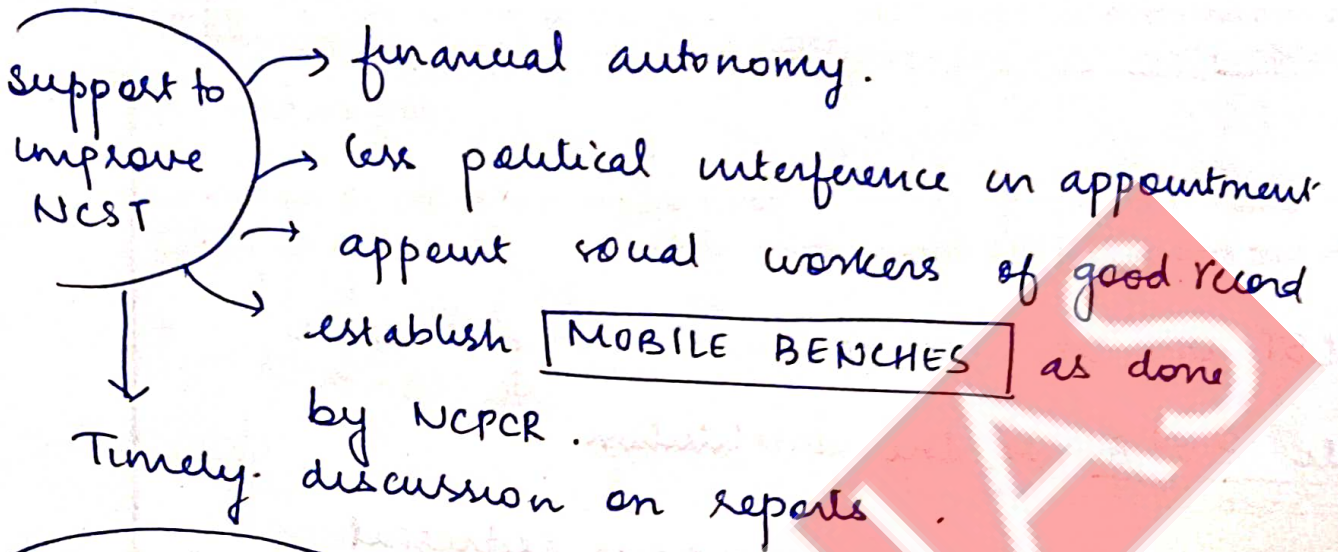 support to
improve
NCST
→ financial autonomy.
→ less political interference in appointment
→ appoint social workers of good record
→ establish MOBILE BENCHES as done
by NCPCR.
Timely discussion on reports.
IAS